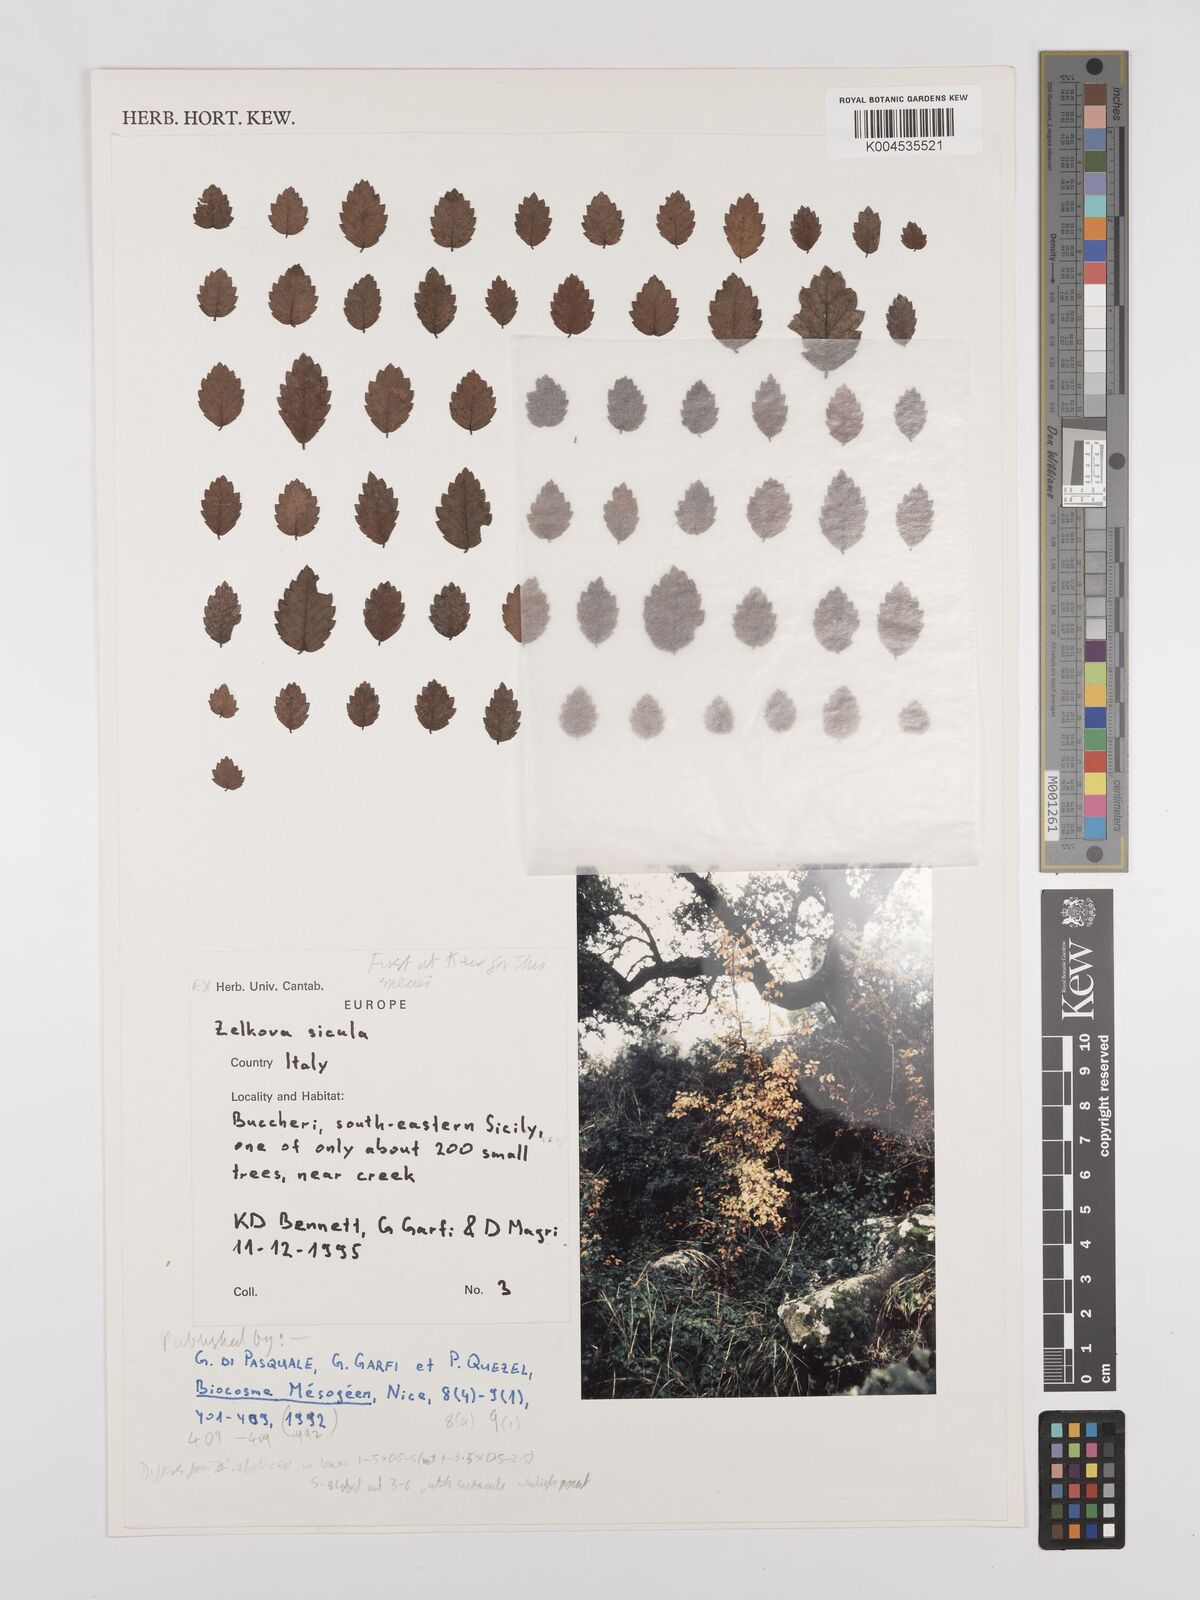 HERB. HORT. KEW.
ROYAL BOTANIC GARDENS KEW
K004535521
First at Kew for this
species
Ex Herb. Univ. Cantab.
EUROPE
Zelkova sicula
Country Italy
Locality and Habitat:
Buccheri, south-eastern Sicily,
one of only about 200 small
trees, near creek
KD Bennett, G Garfi & D Magri
11-12-1995
Coll. No. 3
Published by:-
G. DI PASQUALE, G. GARFI et P. QUEZEL,
Biocosme Mésogéen, Nice, 8(4)-9(1),
401-409, (1992)
8(4) 9(1)
401-409 1992
in leaves
inches
Density
Don Williams
M001261
centimeters
Royal Botanic Gardens
Kew
0 1 2 3 4 5 6 7 8 9 10
cm
copyright reserved